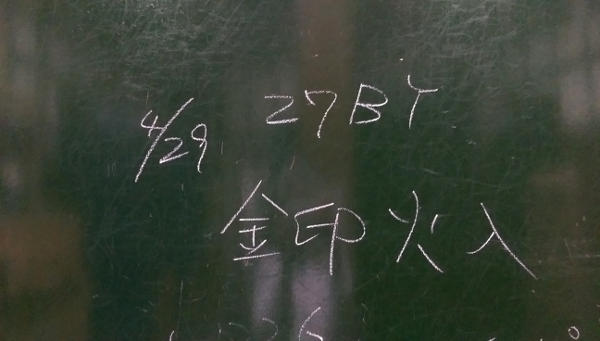 4/29 27BY
金印火入
26